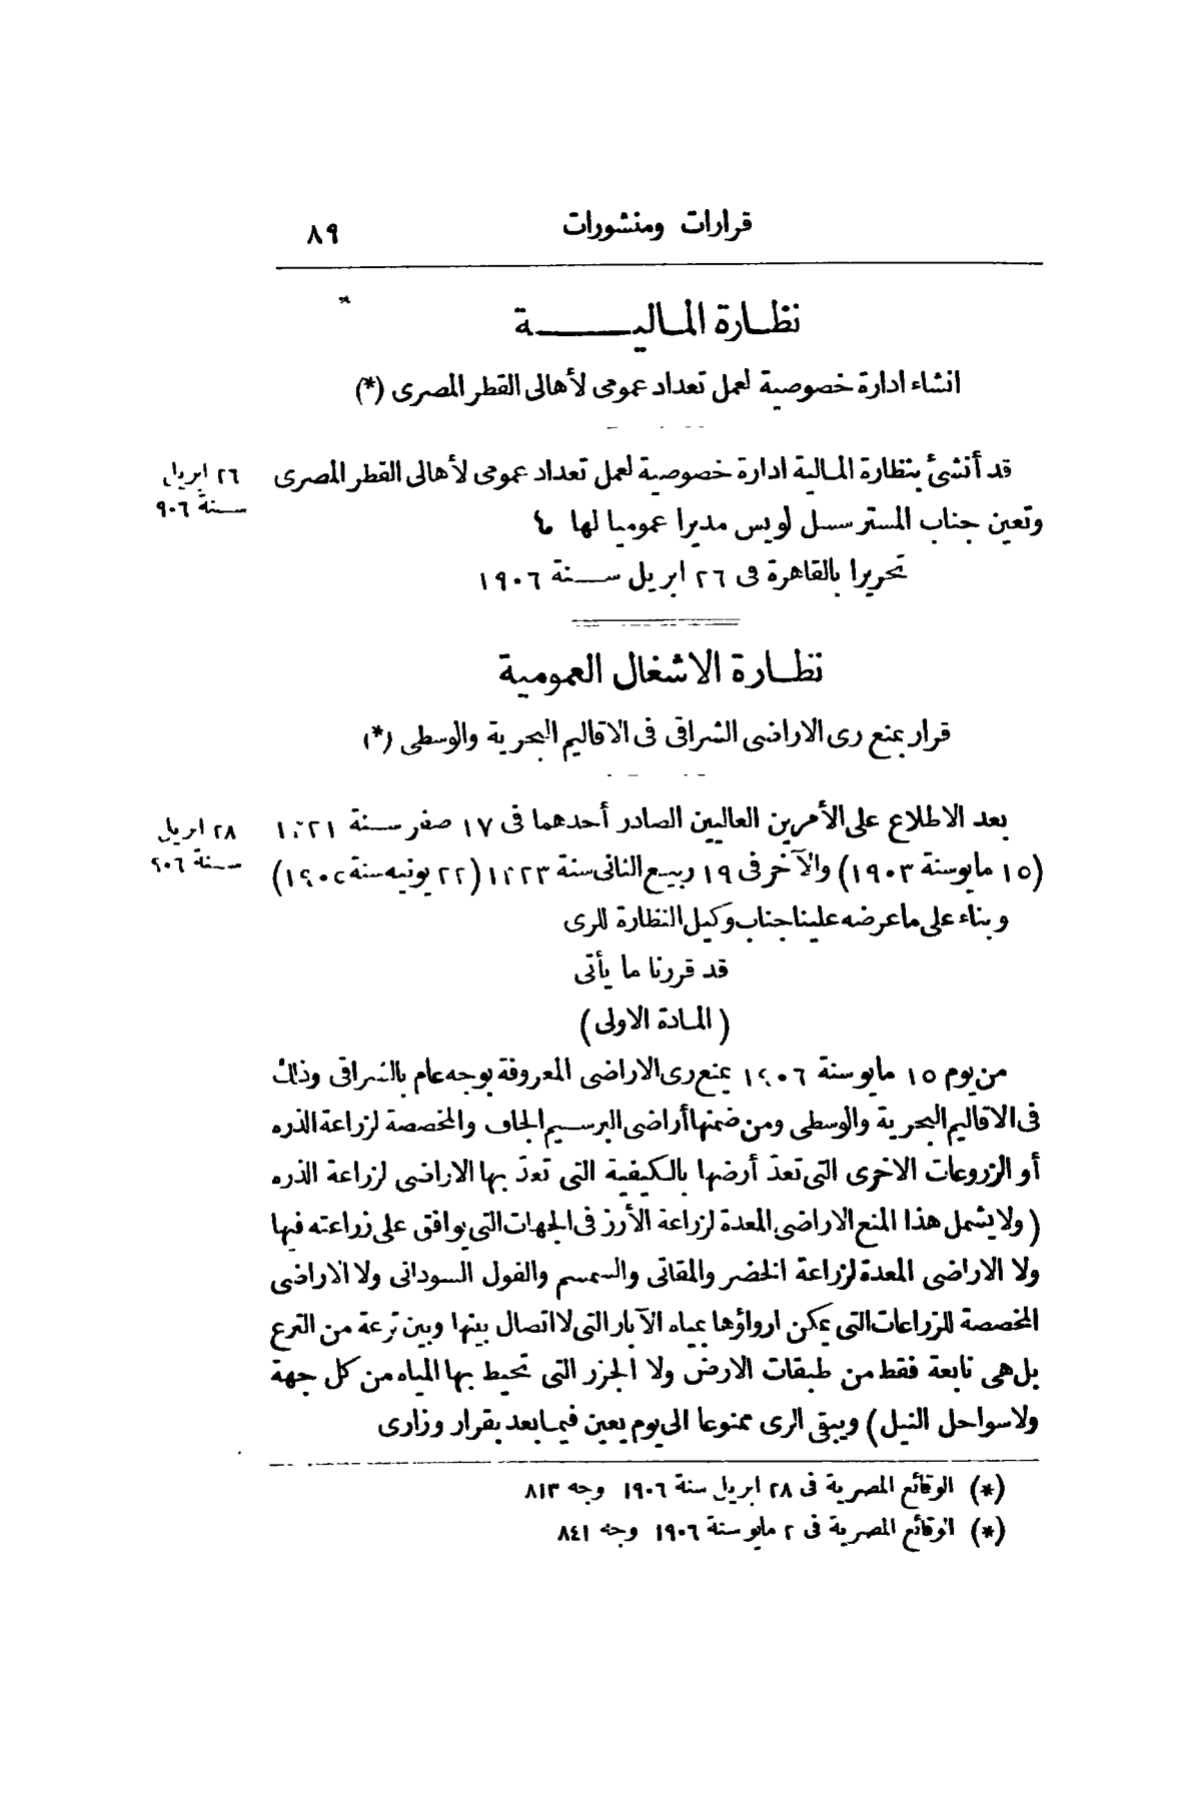 قرارات ومنشورات
٨٩
نظارة المالية
انشاء ادارة خصوصية لعمل تعداد عمومى لأهالى القطر المصرى (*)
٢٦ ابريل
سنة ٩٠٦
قد أنشئ بنظارة المالية ادارة خصوصية لعمل تعداد عمومى لأهالى القطر المصرى
وتعين جناب المستر سسل لويس مديرا عموميا لها
تحريرا بالقاهرة فى ٢٦ ابريل سنة ١٩٠٦
نظارة الاشغال العمومية
قرار بمنع رى الاراضى الشراقى فى الاقاليم البحرية والوسطى (*)
٢٨ ابريل
سنة ٩٠٦
بعد الاطلاع على الأمرين العاليين الصادر أحدهما فى ١٧ صفر سنة ١٣٢١
(١٥ مايو سنة ١٩٠٣) والآخر فى ١٩ ربيع الثانى سنة ١٣٢٣ (٢٢ يونيه سنة ١٩٠٥)
وبناء على ما عرضه علينا جناب وكيل النظارة للرى
قد قررنا ما يأتى
(المادة الاولى)
من يوم ١٥ مايو سنة ١٩٠٦ يمنع رى الاراضى المعروفة بوجه عام بالشراقى وذلك
فى الاقاليم البحرية والوسطى ومن ضمنها أراضى البرسيم الجاف والمخصصة لزراعة الذره
أو الزروعات الاخرى التى تعدّ أرضها بالكيفية التى تعدّ بها الاراضى لزراعة الذره
(ولا يشمل هذا المنع الاراضى المعدة لزراعة الأرز فى الجهات التى يوافق على زراعته فيها
ولا الاراضى المعدة لزراعة الخضر والمقاتى والسمسم والفول السودانى ولا الاراضى
المخصصة للزراعات التى يمكن ارواؤها بمياه الآبار التى لا اتصال بينها وبين ترعة من الترع
بل هى تابعة فقط من طبقات الارض ولا الجزر التى تحيط بها المياه من كل جهة
ولا سواحل النيل) ويبقى الرى ممنوعا الى يوم يعين فيما بعد بقرار وزارى
(*) الوقائع المصرية فى ٢٨ ابريل سنة ١٩٠٦ وجه ٨١٣
(*) الوقائع المصرية فى ٢ مايو سنة ١٩٠٦ وجه ٨٤١